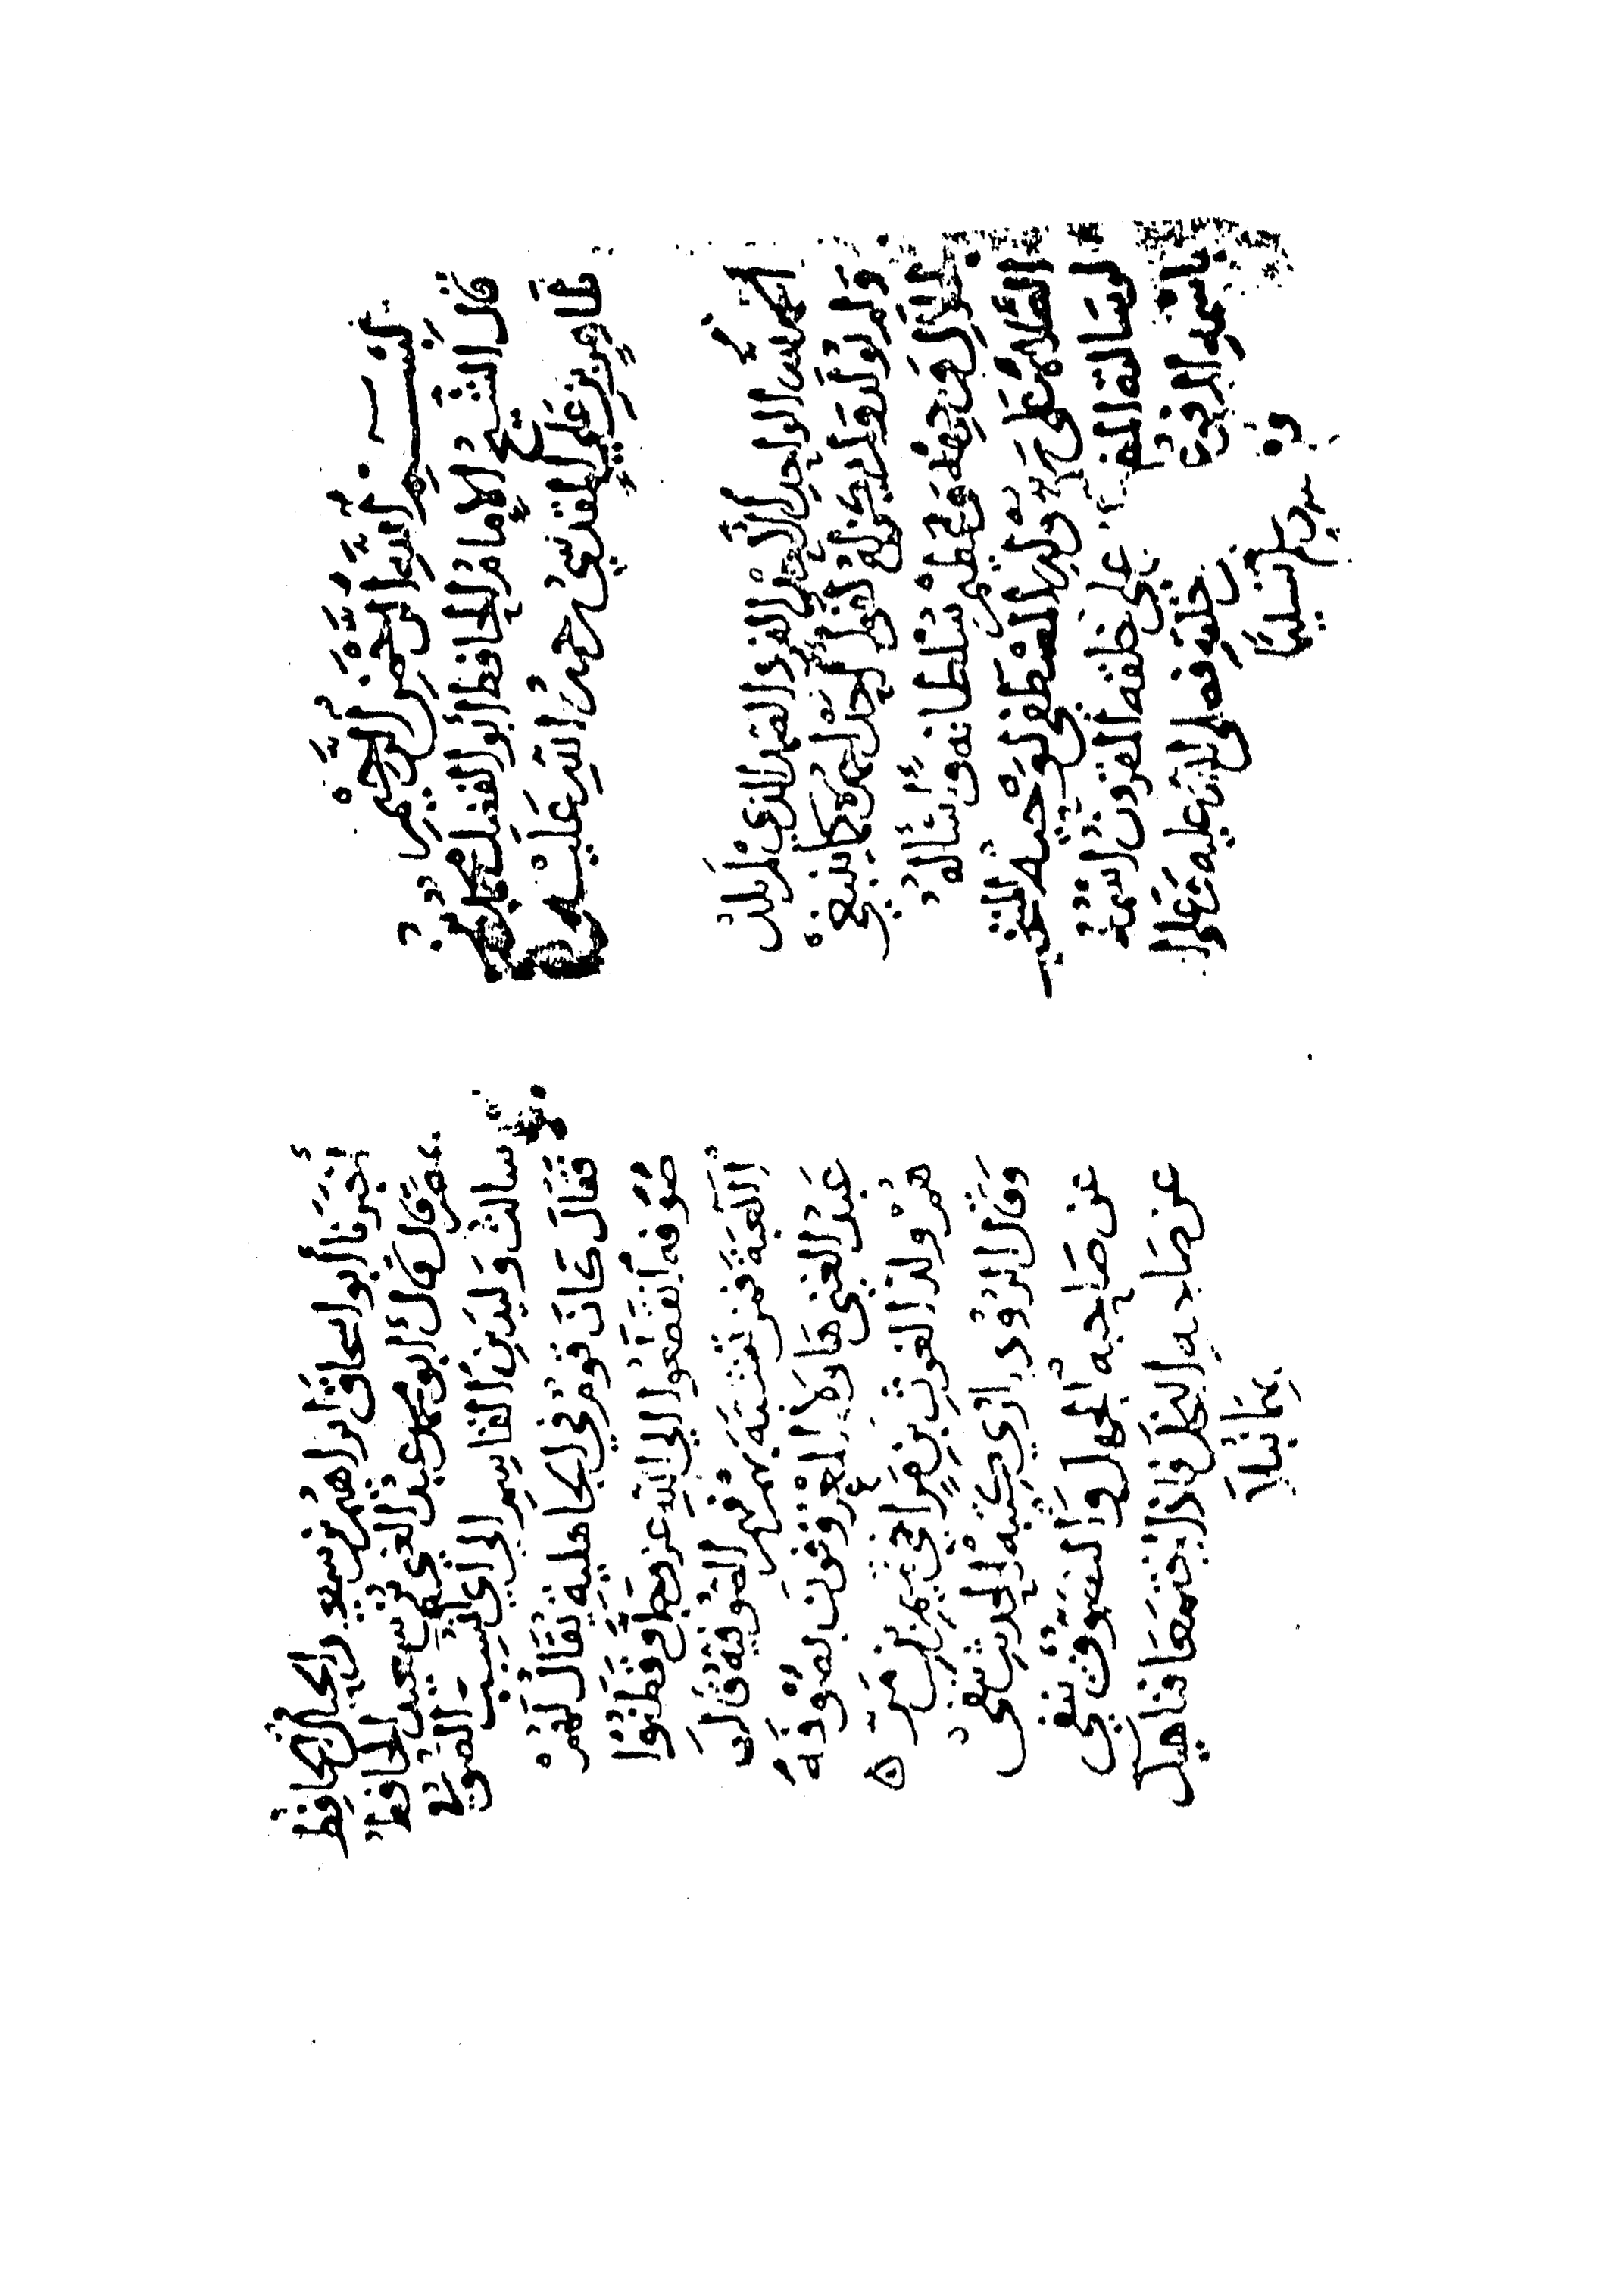 بسم الله الرحمن الرحيم
قال الشيخ الإمام الحافظ أبو الفضل محمد بن
طاهر بن علي المقدسي رحمة الله عليه
الحمد لله الواحد الأحد الفرد الصمد الذي لم يلد
ولم يولد ولم يكن له كفوا أحد أحمده كما ينبغي
لجلال وجهه وعظيم سلطانه وأسأله
الصلاة على المصطفى لوحيه المنتخب
لرسالته على خلقه المقرون اسمه
باسمه المرفوع
صلى الله عليه وعلى
وسلم تسليما
أخبرنا أبو إسحاق إبراهيم بن سعيد الحبال الحافظ
بمصر قال قال أبو محمد عبد الغني بن سعيد الحافظ
سألت وليد بن القاسم إلى أي شيء نسبت الصوفي
فقال كان قوم في الجاهلية يقال لهم
صوفه انقطعوا إلى الله عز وجل وقطنوا
الكعبة فمن تشبه بهم فهم الصوفية قال
عبد الغني هاولاء المعروفون بصوفة
هم ولد الغوث بن مر أخي تميم بن مر
وقال الروذباري كتبة الحديث تنفي
عن صاحبه الجهل والتصوف ينفي
عن صاحبه البخل فإذا اجتمعا فناهيك
بهما نبلا